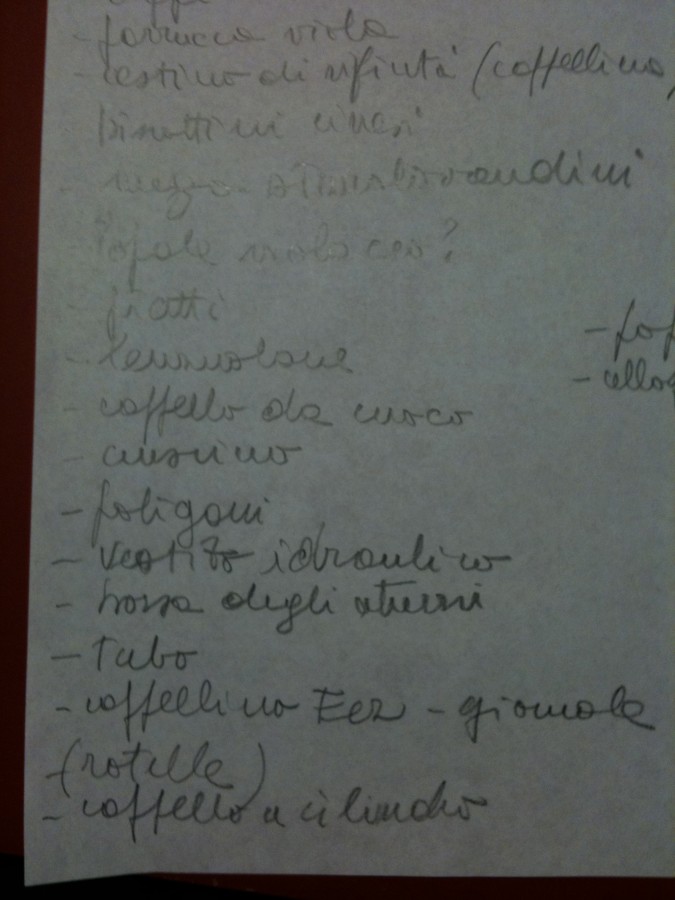 - parrucca viola
- cestino di rifiuti (cappellino)
biscottini cinesi
-
viola ?
- piatti
-
- cappello da cuoco
- cuscino
- poligoni
- vestito idraulico
- borsa degli attrezzi
- tubo
- cappellino Eez - giornale
(rotelle)
- cappello a cilindro